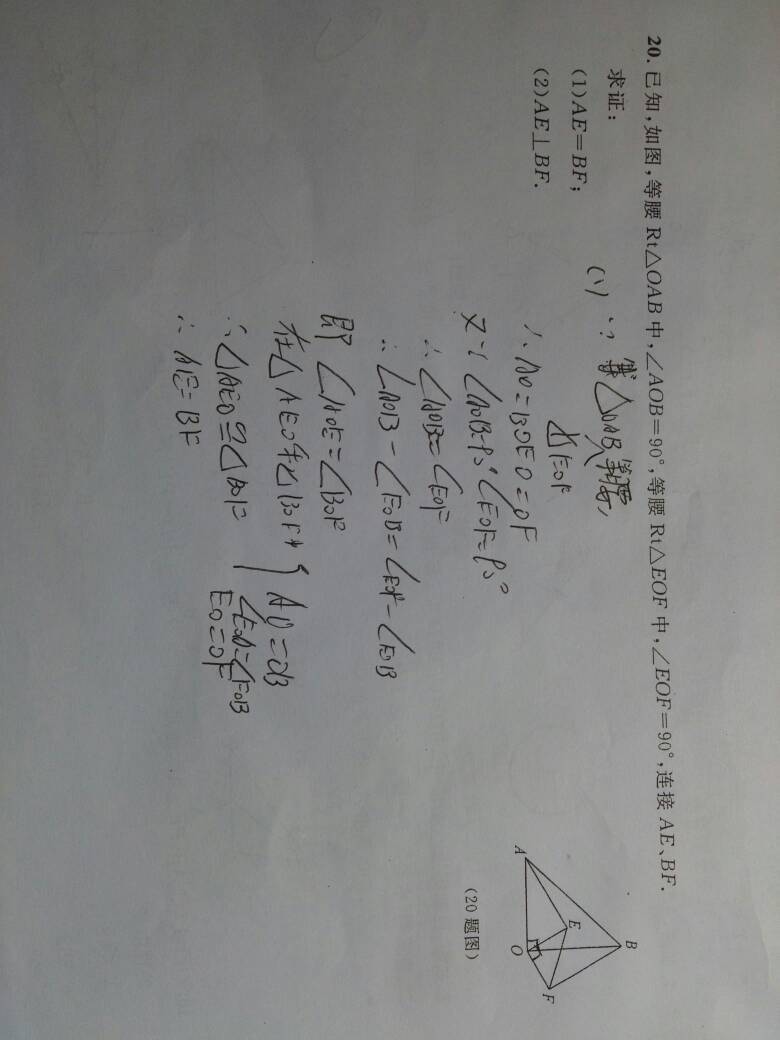 20. 已知,如图,等腰 Rt△OAB 中,∠AOB=90°,等腰 Rt△EOF 中,∠EOF=90°,连接 AE、BF.
求证:
(1)AE=BF;
(2)AE⊥BF.
(1) ∵ △OAB 等腰
△EOF
∴ AO=BO EO=OF
又∵∠AOB=90° ∠EOF=90°
∴ ∠AOB=∠EOF
∴ ∠AOB-∠EOB=∠EOF-∠EOB
即 ∠AOE=∠BOF
在△AEO和△BOF中 { AO=OB
∠EOA=∠FOB
EO=OF
∴△AEO≌△BOF
∴ AE=BF
A
B
E
O
F
(20 题图)